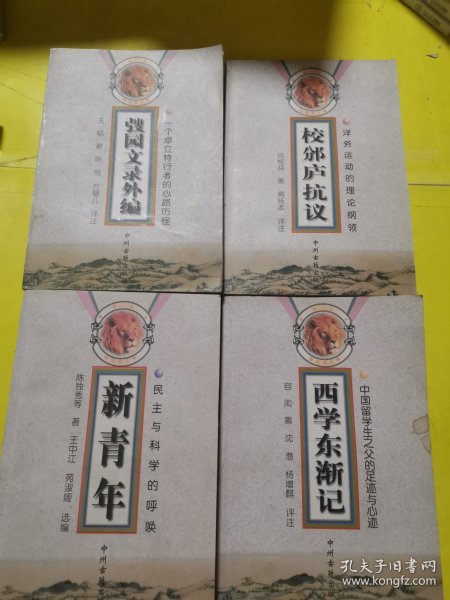 弢园文录外编
一个卓立特行者的心路历程
王韬 著 陈恒 方银儿 评注
中州古籍出版社
校邠庐抗议
洋务运动的理论纲领
冯桂芬 著 戴扬本 评注
中州古籍出版社
新青年
民主与科学的呼唤
陈独秀等 著 王中江 苑淑娅 选编
中州古籍出版社
西学东渐记
中国留学生之父的足迹与心迹
容闳 著 沈潜 杨增麒 评注
中州古籍出版社
孔夫子旧书网
www.kongfz.com